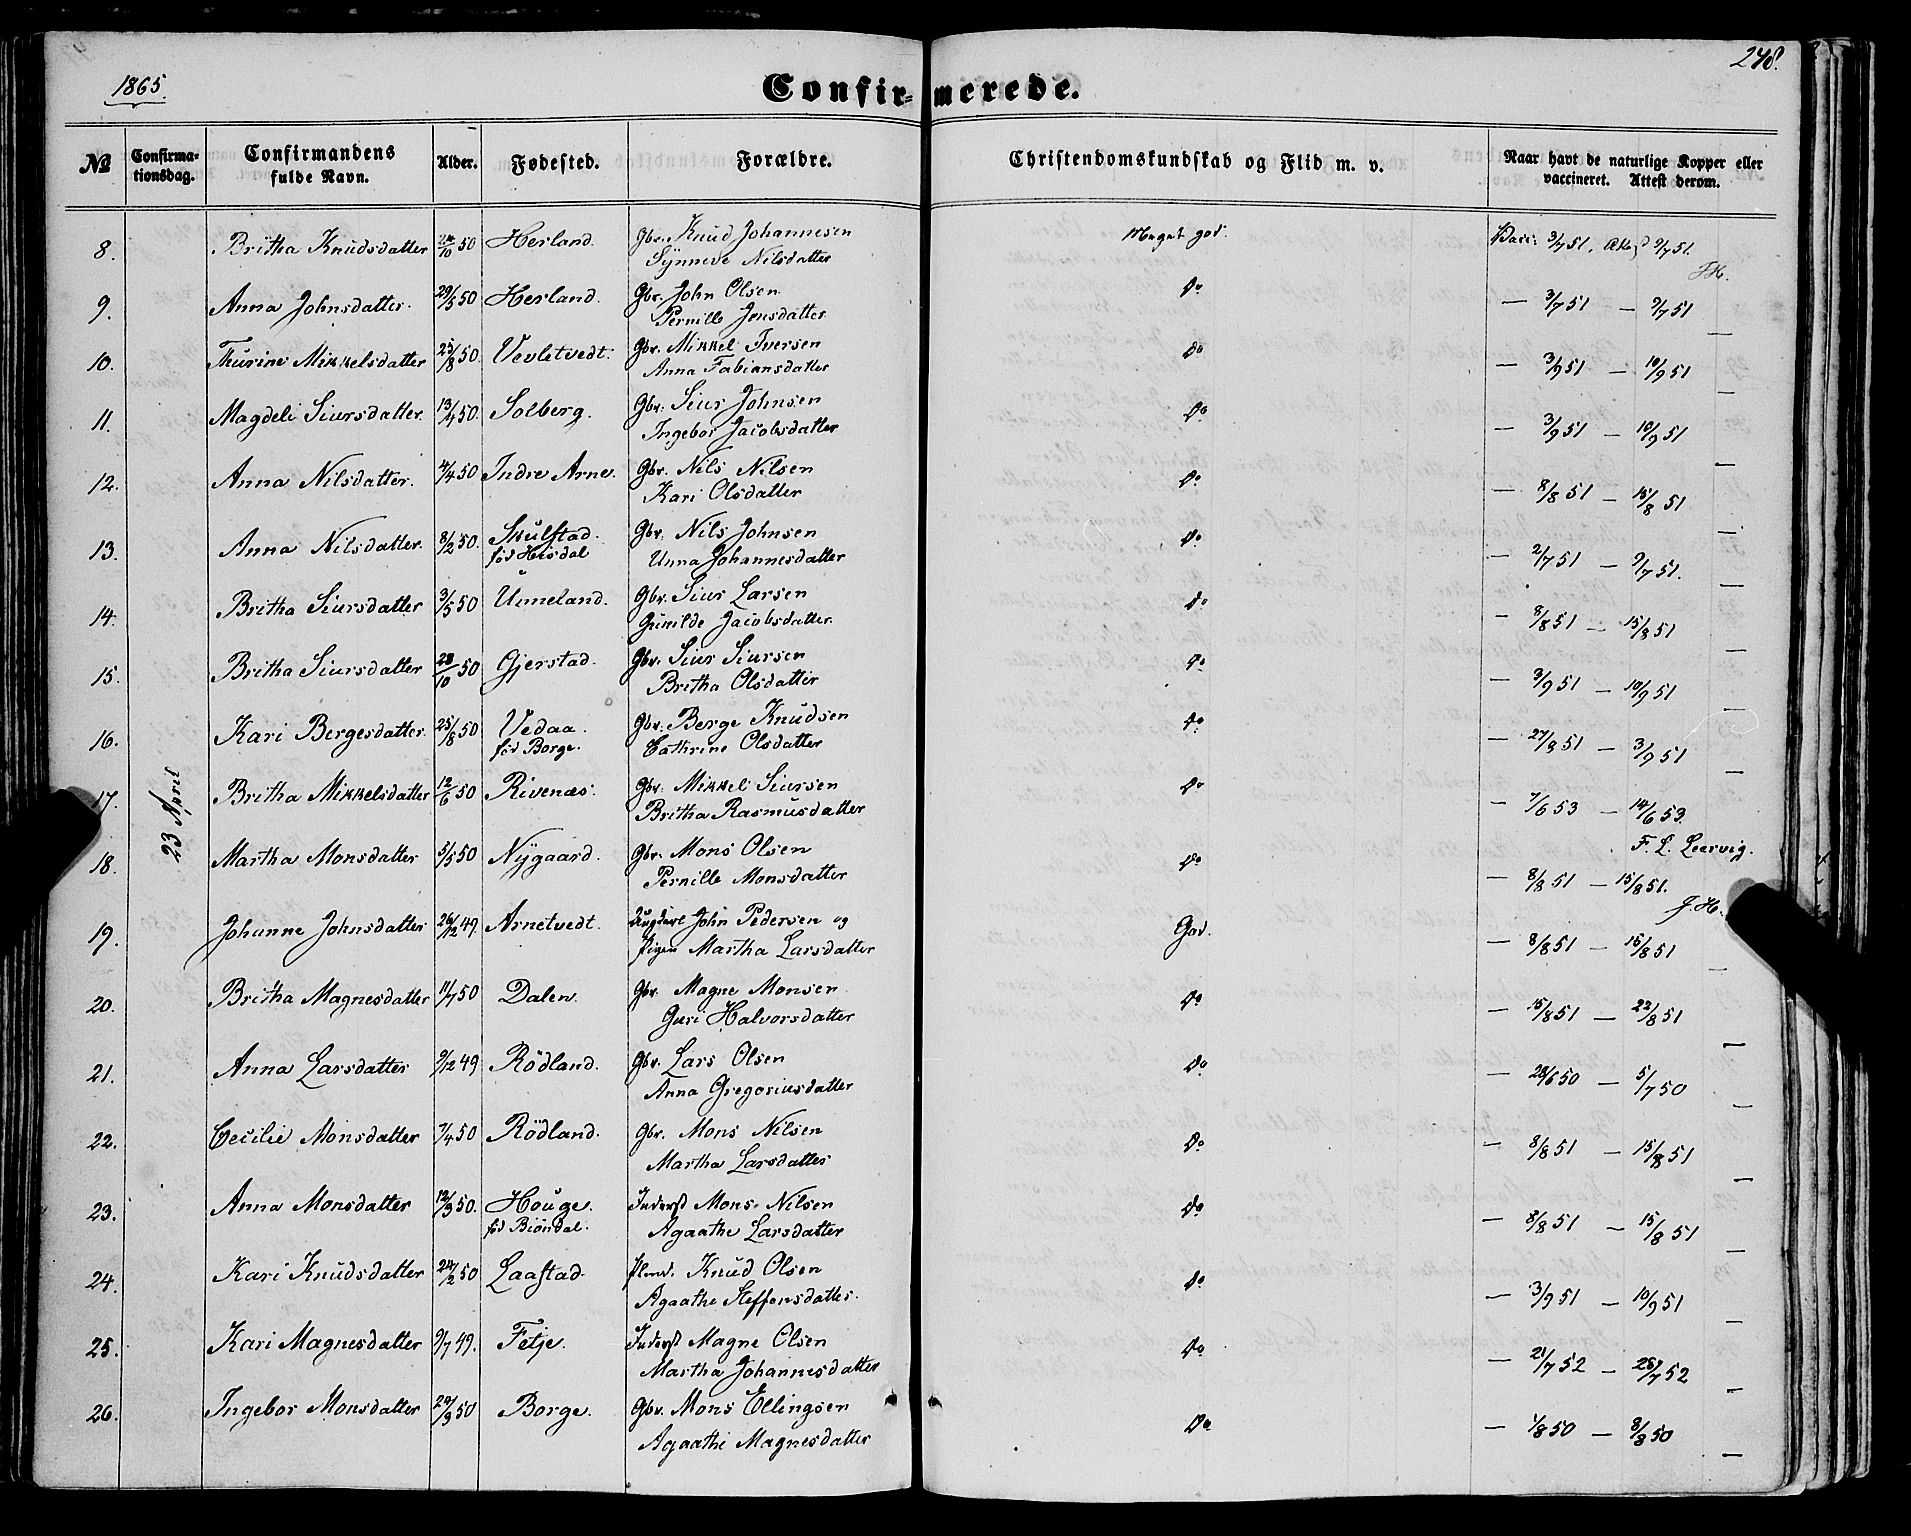 1865.
Confirmerede.
248.
No
Confirmationsdag.
Confirmandens fulde Navn.
Alder.
Fødested.
Forældre.
Christendomskundskab og Flid m. v.
Naar havt de naturlige Kopper eller vaccineret. Attest derom.
23 April
8. Britha Knudsdatter 24/10 50 Herland. Gbr. Knud Johannesen Meget god. Vacc: 3/7 51. 9/7 51.
Synneve Nilsdatter
9. Anna Johnsdatter. 29/5 50 Herland. Gbr. John Olsen Do — 3/7 51 — 9/7 51
Pernille Jensdatter
10. Thurine Mikkelsdatter 25/8 50. Vevletvedt. Gbr. Mikkel Iversen Do — 3/9 51 — 10/9 51
Anna Fabiansdatter —
11. Magdeli Siursdatter. 13/4 50. Solberg. Gbr. Siur Johnsen Do — 3/9 51 — 10/9 51
Ingebor Jacobsdatter —
12. Anna Nilsdatter. 4/4 50 Indre Arne. Gbr. Nils Nilsen Do — 8/8 51 — 15/8 51
Kari Olsdatter —
13. Anna Nilsdatter. 8/2 50. Skulstad. Gbr. Nils Johnsen Do — 2/7 51 — 9/7 51.
fød Hisdal Unna Johannesdatter —
14. Britha Siursdatter 3/5 50 Unneland. Gbr. Siur Larsen Do — 8/8 51 — 15/8 51
Gunilde Jacobsdatter. —
15. Britha Siursdatter 28/10 50 Gjerstad. Gbr. Siur Siursen Do — 3/9 51 — 10/9 51
Britha Olsdatter —
16. Kari Bergesdatter. 25/8 50 Vedaa. Gbr. Berge Knudsen Do — 27/8 51 — 3/9 51
fød Borge. Cathrine Olsdatter —
17. Britha Mikkelsdatter 12/6 50 Rivenæs. Gbr. Mikkel Siursen Do — 7/6 53 — 14/6 53.
Britha Rasmusdatter F. L. Leervig.
18. Martha Monsdatter 5/5 50 Nÿgaard. Gbr. Mons Olsen Do — 8/8 51 — 15/8 51.
Pernille Monsdatter J. H.
19. Johanne Johnsdatter 26/12 49 Arnetvedt. Ungkarl John Pedersen og God. — 8/8 51 — 15/8 51
Pigen Martha Larsdatter —
20. Britha Magnesdatter 11/7 50 Dalen. Gbr. Magne Monsen Do — 15/8 51 — 22/8 51
Guri Halvorsdatter —
21. Anna Larsdatter 9/12 49 Rödland. Gbr. Lars Olsen Do — 28/6 50 — 5/7 50
Anna Gregoriusdatter —
22. Cecilie Monsdatter 7/4 50 Rödland. Gbr. Mons Nilsen Do — 8/8 51 — 15/8 51
Martha Larsdatter —
23. Anna Monsdatter 12/3 50. Houge. Inderst Mons Nilsen Do — 8/8 51 — 15/8 51
fød Biöndal. Agaathe Larsdatter —
24. Kari Knudsdatter 24/2 50 Laastad. Knud Olsen Do — 3/9 51 — 10/9 51
Agaathe Steffensdatter. —
25. Kari Magnesdatter 9/7 49. Fetje. Inderst Magne Olsen Do — 21/7 52 — 28/7 52
Martha Johannesdatter —
26. Ingebor Monsdatter 20/9 50 Borge. Gbr. Mons Ellingsen Do — 1/8 50 — 8/8 50
Agaathe Magnesdatter —